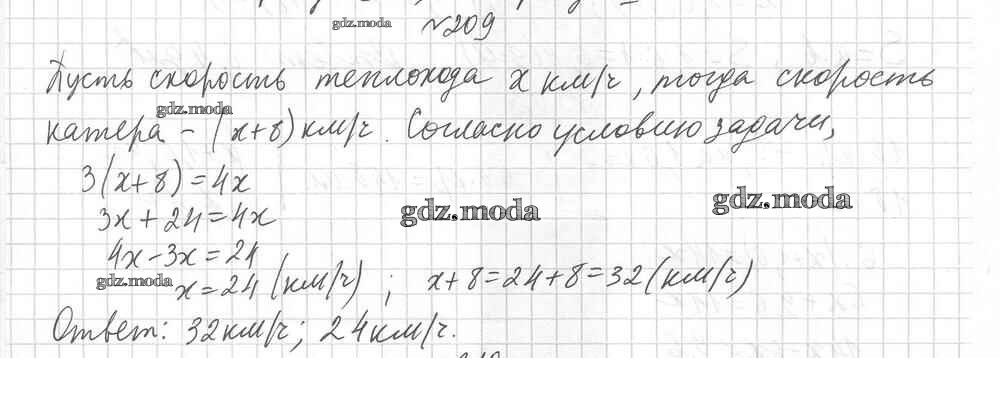 gdz.moda
№209
Пусть скорость теплохода x км/ч, тогда скорость
gdz.moda
катера - (x+8) км/ч. Согласно условию задачи,
3(x+8)=4x
3x+24=4x
gdz.moda
gdz.moda
4x-3x=24
gdz.moda
x=24 (км/ч) ; x+8=24+8=32 (км/ч)
Ответ: 32 км/ч; 24 км/ч.